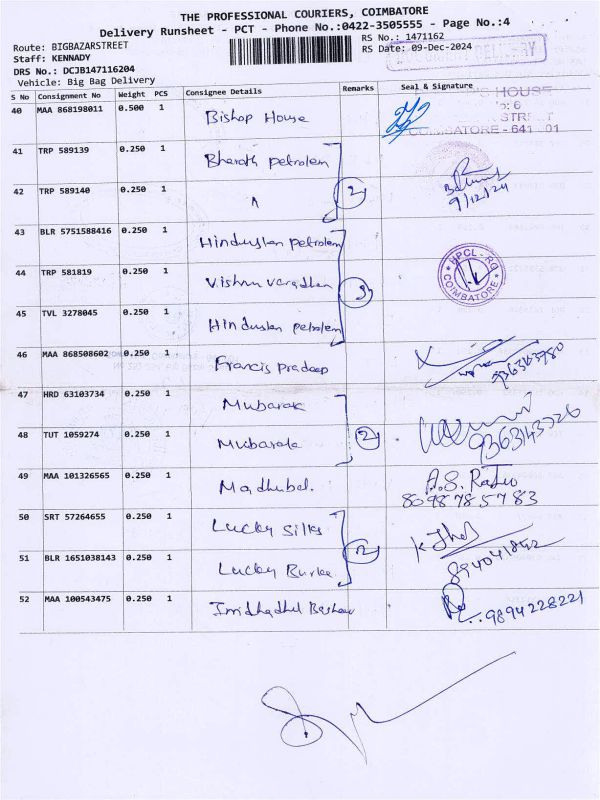 THE PROFESSIONAL COURIERS, COIMBATORE
Delivery Runsheet - PCT - Phone No.:0422-3505555 - Page No.:4
Route: BIGBAZARSTREET RS No.: 1471162
Staff: KENNADY RS Date: 09-Dec-2024
DRS No.: DCJB147116204 DELIVERY
Vehicle: Big Bag Delivery
S No Consignment No Weight PCS Consignee Details Remarks Seal & Signature
40 MAA 868198011 0.500 1 Bishop House HOUSE
6
STREET
COIMBATORE - 641 001
41 TRP 589139 0.250 1 Bharath petrolem
42 TRP 589140 0.250 1 " 2 9/12/24
43 BLR 5751588416 0.250 1 Hindustan petrolem
44 TRP 581819 0.250 1 Vishnu varadhan 3 HPCL - RO COIMBATORE
45 TVL 3278045 0.250 1 Hindustan petrolem
46 MAA 868508602 0.250 1 Francis Pradeep
47 HRD 63103734 0.250 1 Mubarak
48 TUT 1059274 0.250 1 Mubarak 2
49 MAA 101326565 0.250 1 Madhubal. 8098785783
50 SRT 57264655 0.250 1 Lucky Silks
51 BLR 1651038143 0.250 1 Lucky 2
52 MAA 100543475 0.250 1 9894228221